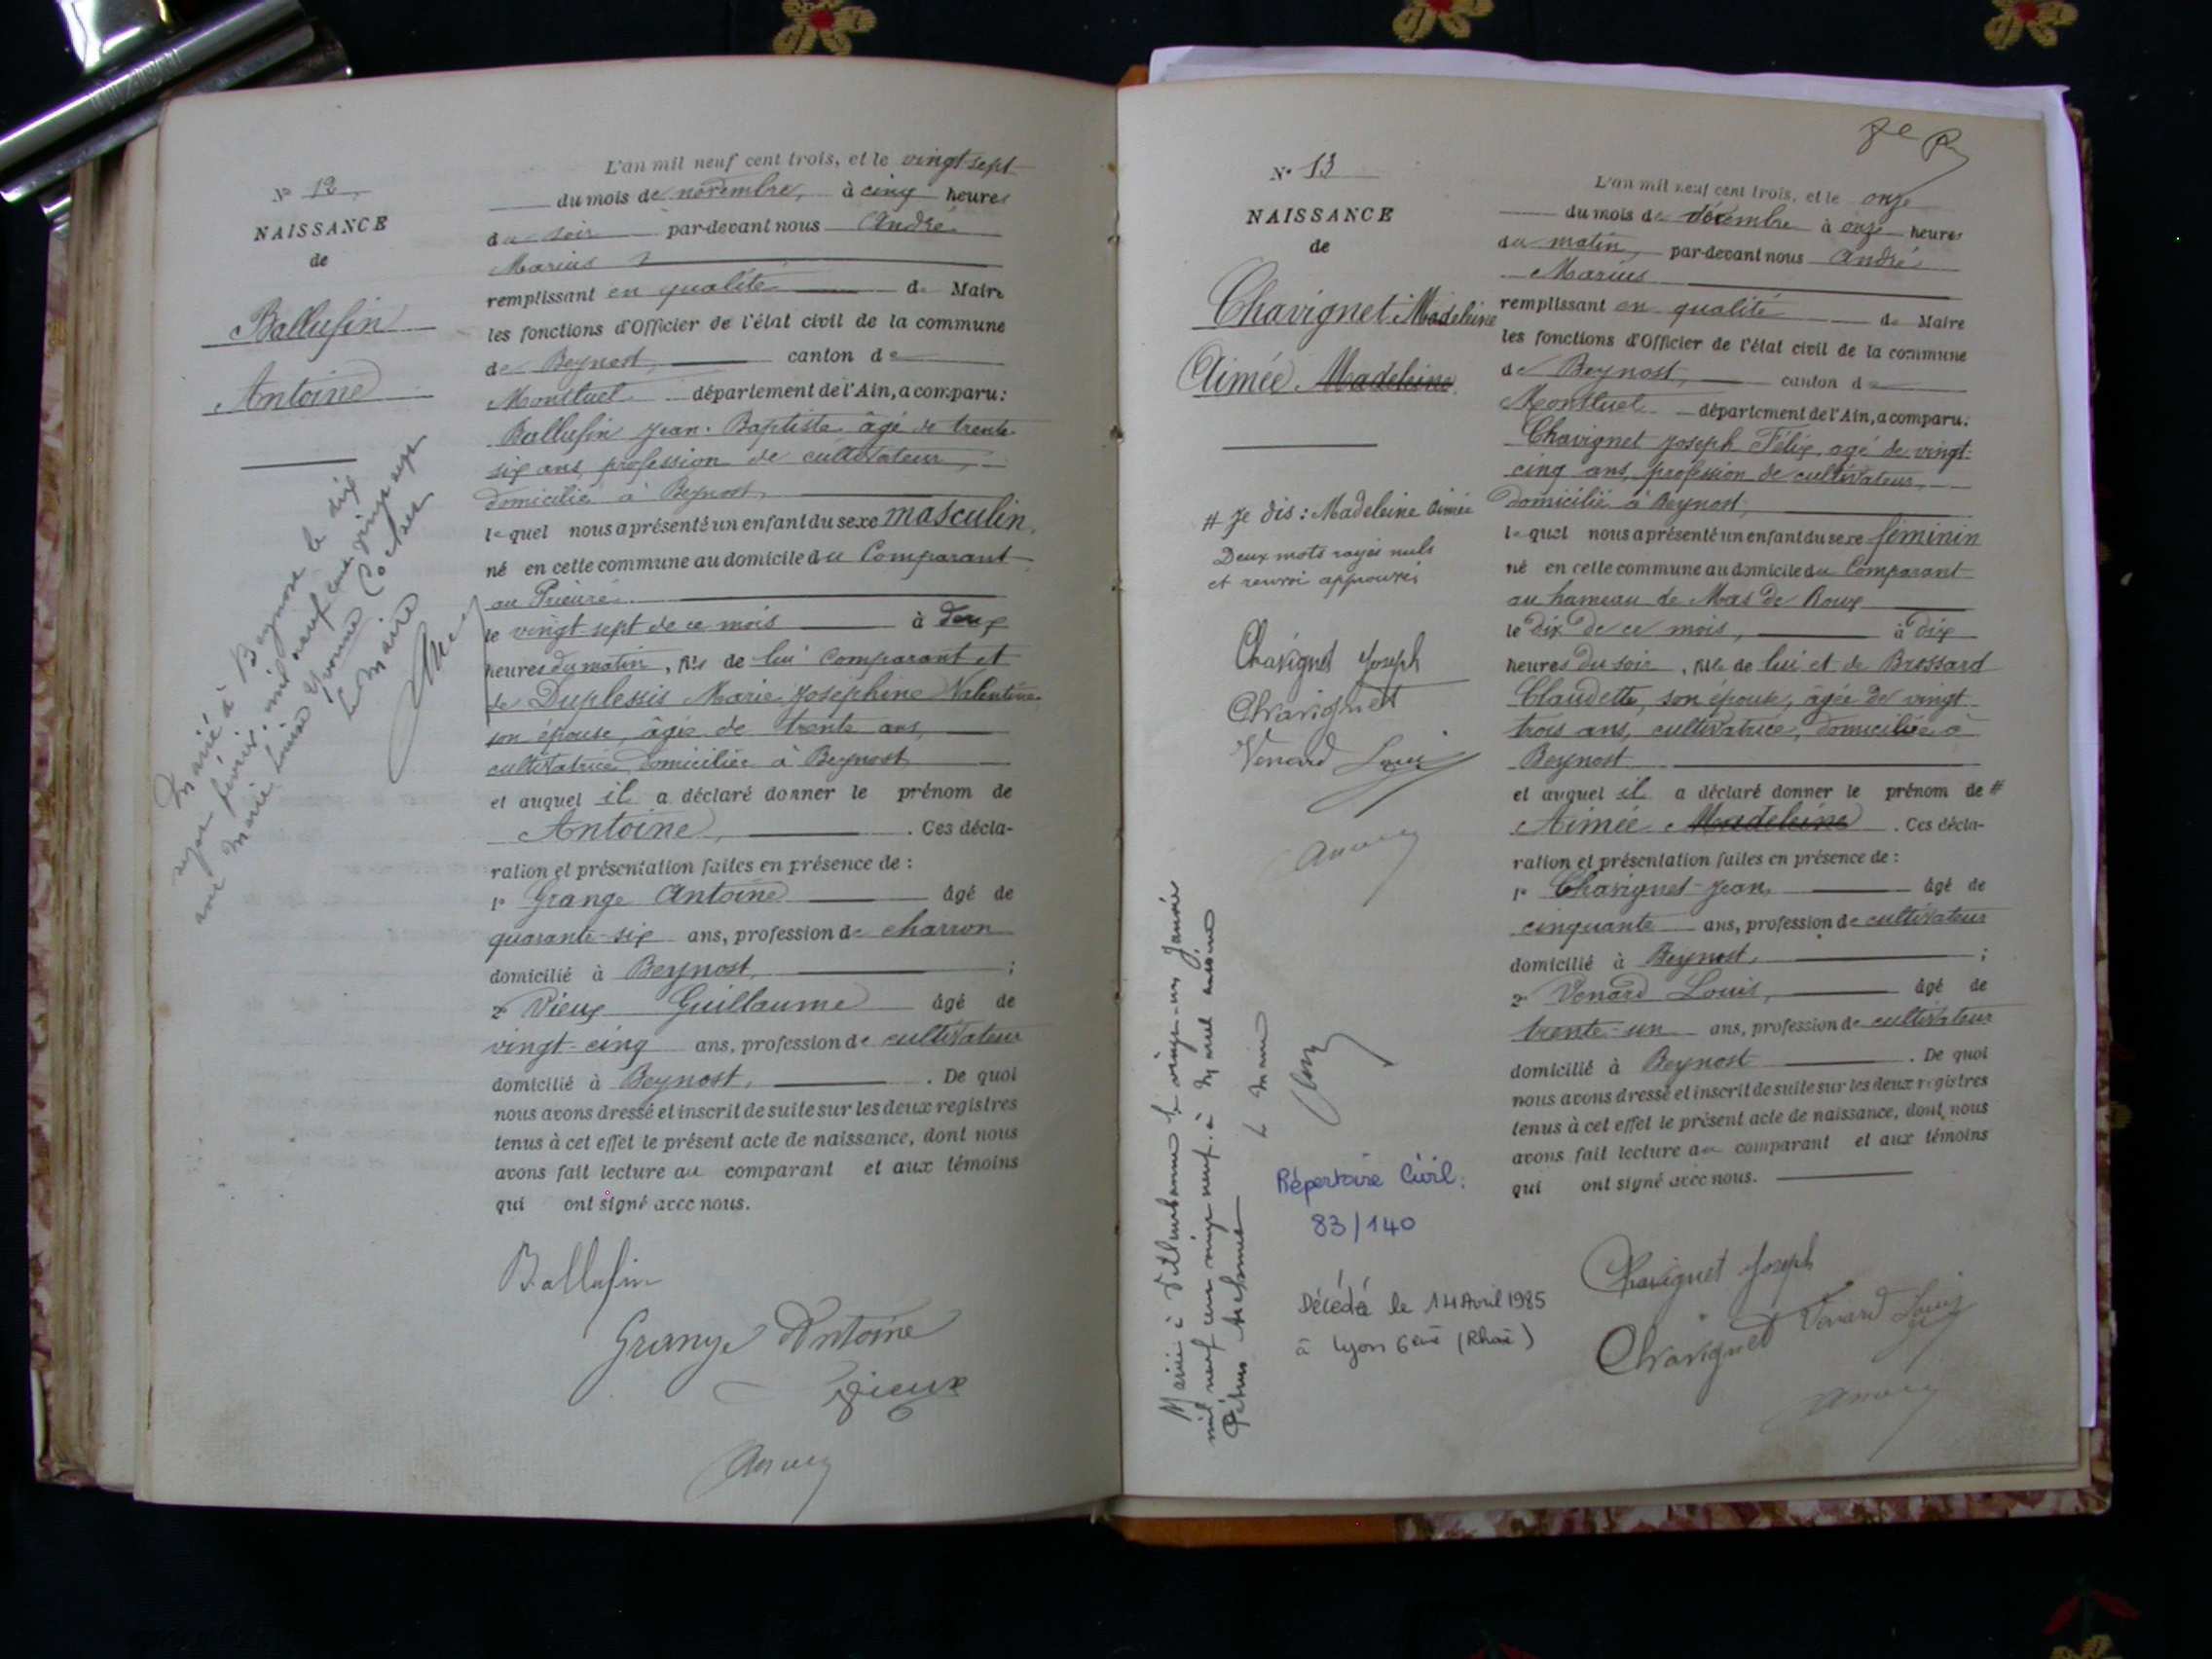 N° 12
NAISSANCE
de
Ballufin
Antoine
Marié à Beynost le dix
sept février mil neuf cent vingt sept
avec Marie Louise Yvonne Cochet
Le Maire
L'an mil neuf cent trois, et le vingt sept
du mois de novembre, à cinq heures
du soir par-devant nous André
Marius
remplissant en qualité de Maire
les fonctions d'Officier de l'état civil de la commune
de Beynost, canton de
Montluel département de l'Ain, a comparu:
Ballufin Jean-Baptiste âgé de trente
six ans, profession de cultivateur,
domicilié à Beynost,
lequel nous a présenté un enfant du sexe masculin,
né en cette commune au domicile du Comparant
au Prieuré.
le vingt-sept de ce mois à deux
heures du matin, fils de lui comparant et
de Duplessis Marie Joséphine Valentine
son épouse, âgée de trente ans,
cultivatrice, domiciliée à Beynost
et auquel il a déclaré donner le prénom de
Antoine, . Ces décla-
ration et présentation faites en présence de :
1° Grange Antoine âgé de
quarante-six ans, profession de charron
domicilié à Beynost, ;
2° Vieux Guillaume âgé de
vingt-cinq ans, profession de cultivateur
domicilié à Beynost, . De quoi
nous avons dressé et inscrit de suite sur les deux registres
tenus à cet effet le présent acte de naissance, dont nous
avons fait lecture au comparant et aux témoins
qui ont signé avec nous.
Ballufin
Grange Antoine
Vieux
N° 13
NAISSANCE
de
Chavignet Madeleine
Aimée Madeleine
# Je dis : Madeleine Aimée
Deux mots rayés nuls
et renvoi approuvés
Chavignet Joseph
Chavignet
Venard Louis
Marié à Villeurbanne le vingt-un Janvier
mil neuf cent vingt neuf à Marcel
Pétrus
Le Maire
Répertoire Civil :
83/140
Décédée le 14 Avril 1985
à Lyon 6ème (Rhône)
L'an mil neuf cent trois, et le onze
du mois de décembre à onze heures
du matin, par-devant nous André
Marius
remplissant en qualité de Maire
les fonctions d'Officier de l'état civil de la commune
de Beynost, canton de
Montluel département de l'Ain, a comparu:
Chavignet Joseph Félix, agé de vingt-
cinq ans, profession de cultivateur,
domicilié à Beynost,
lequel nous a présenté un enfant du sexe féminin
né en cette commune au domicile du Comparant
au hameau de Mas de Roux
le dix de ce mois, à dix
heures du soir, fille de lui et de Brossard
Claudette, son épouse, âgée de vingt
trois ans, cultivatrice, domiciliée à
Beynost
et auquel il a déclaré donner le prénom de #
Aimée Madeleine . Ces décla-
ration et présentation faites en présence de :
1° Chavignet Jean, âgé de
cinquante ans, profession de cultivateur
domicilié à Beynost, ;
2° Venard Louis, âgé de
trente-un ans, profession de cultivateur
domicilié à Beynost . De quoi
nous avons dressé et inscrit de suite sur les deux registres
tenus à cet effet le présent acte de naissance, dont nous
avons fait lecture au comparant et aux témoins
qui ont signé avec nous.
Chavignet Joseph
Chavignet Venard Louis